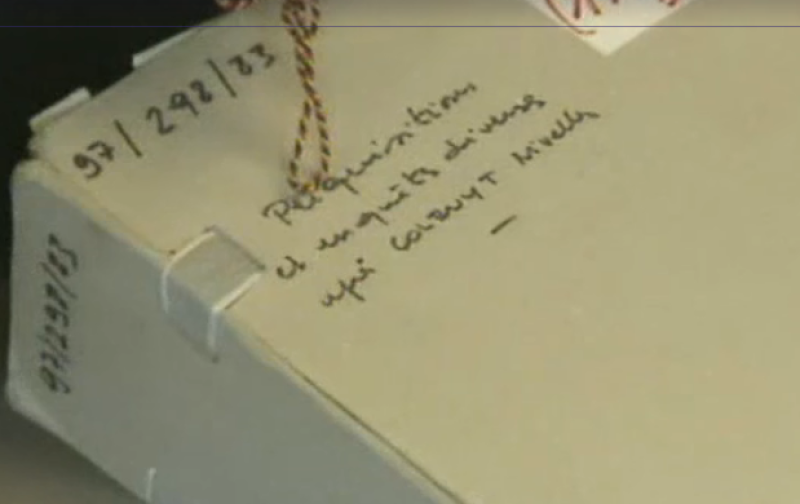 97/298/83
Perquisitions
et enquêts diverses
COLRUYT Nivelles
97/298/83